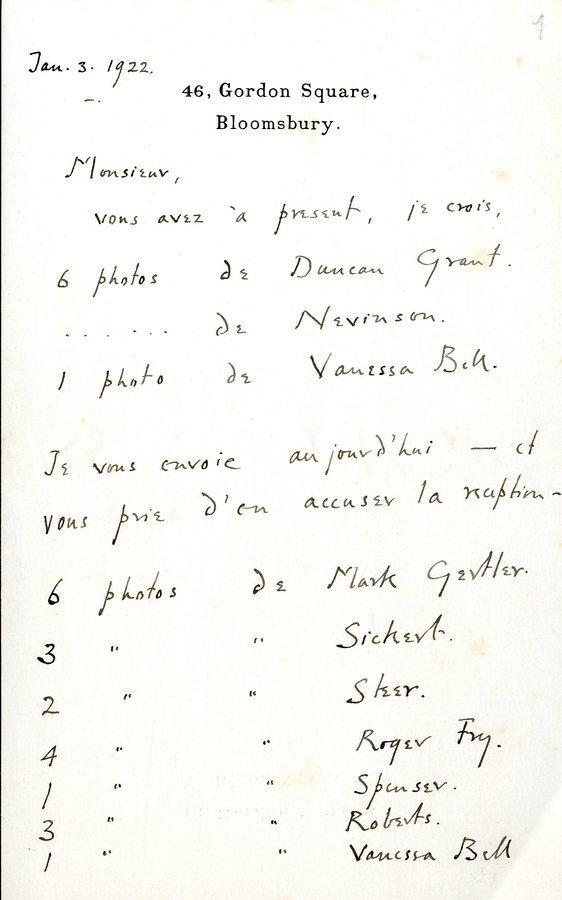 1
Jan. 3. 1922.
46, Gordon Square,
Bloomsbury.
Monsieur,
vous avez à present, je crois,
6 photos de Duncan Grant.
. . . . . . . de Nevinson.
1 photo de Vanessa Bell.
Je vous envoie aujourd'hui — et
vous prie d'en accuser la reception –
6 photos de Mark Gertler.
3 " " Sickert.
2 " " Steer.
4 " " Roger Fry.
1 " " Spenser.
3 " " Roberts.
1 " " Vanessa Bell